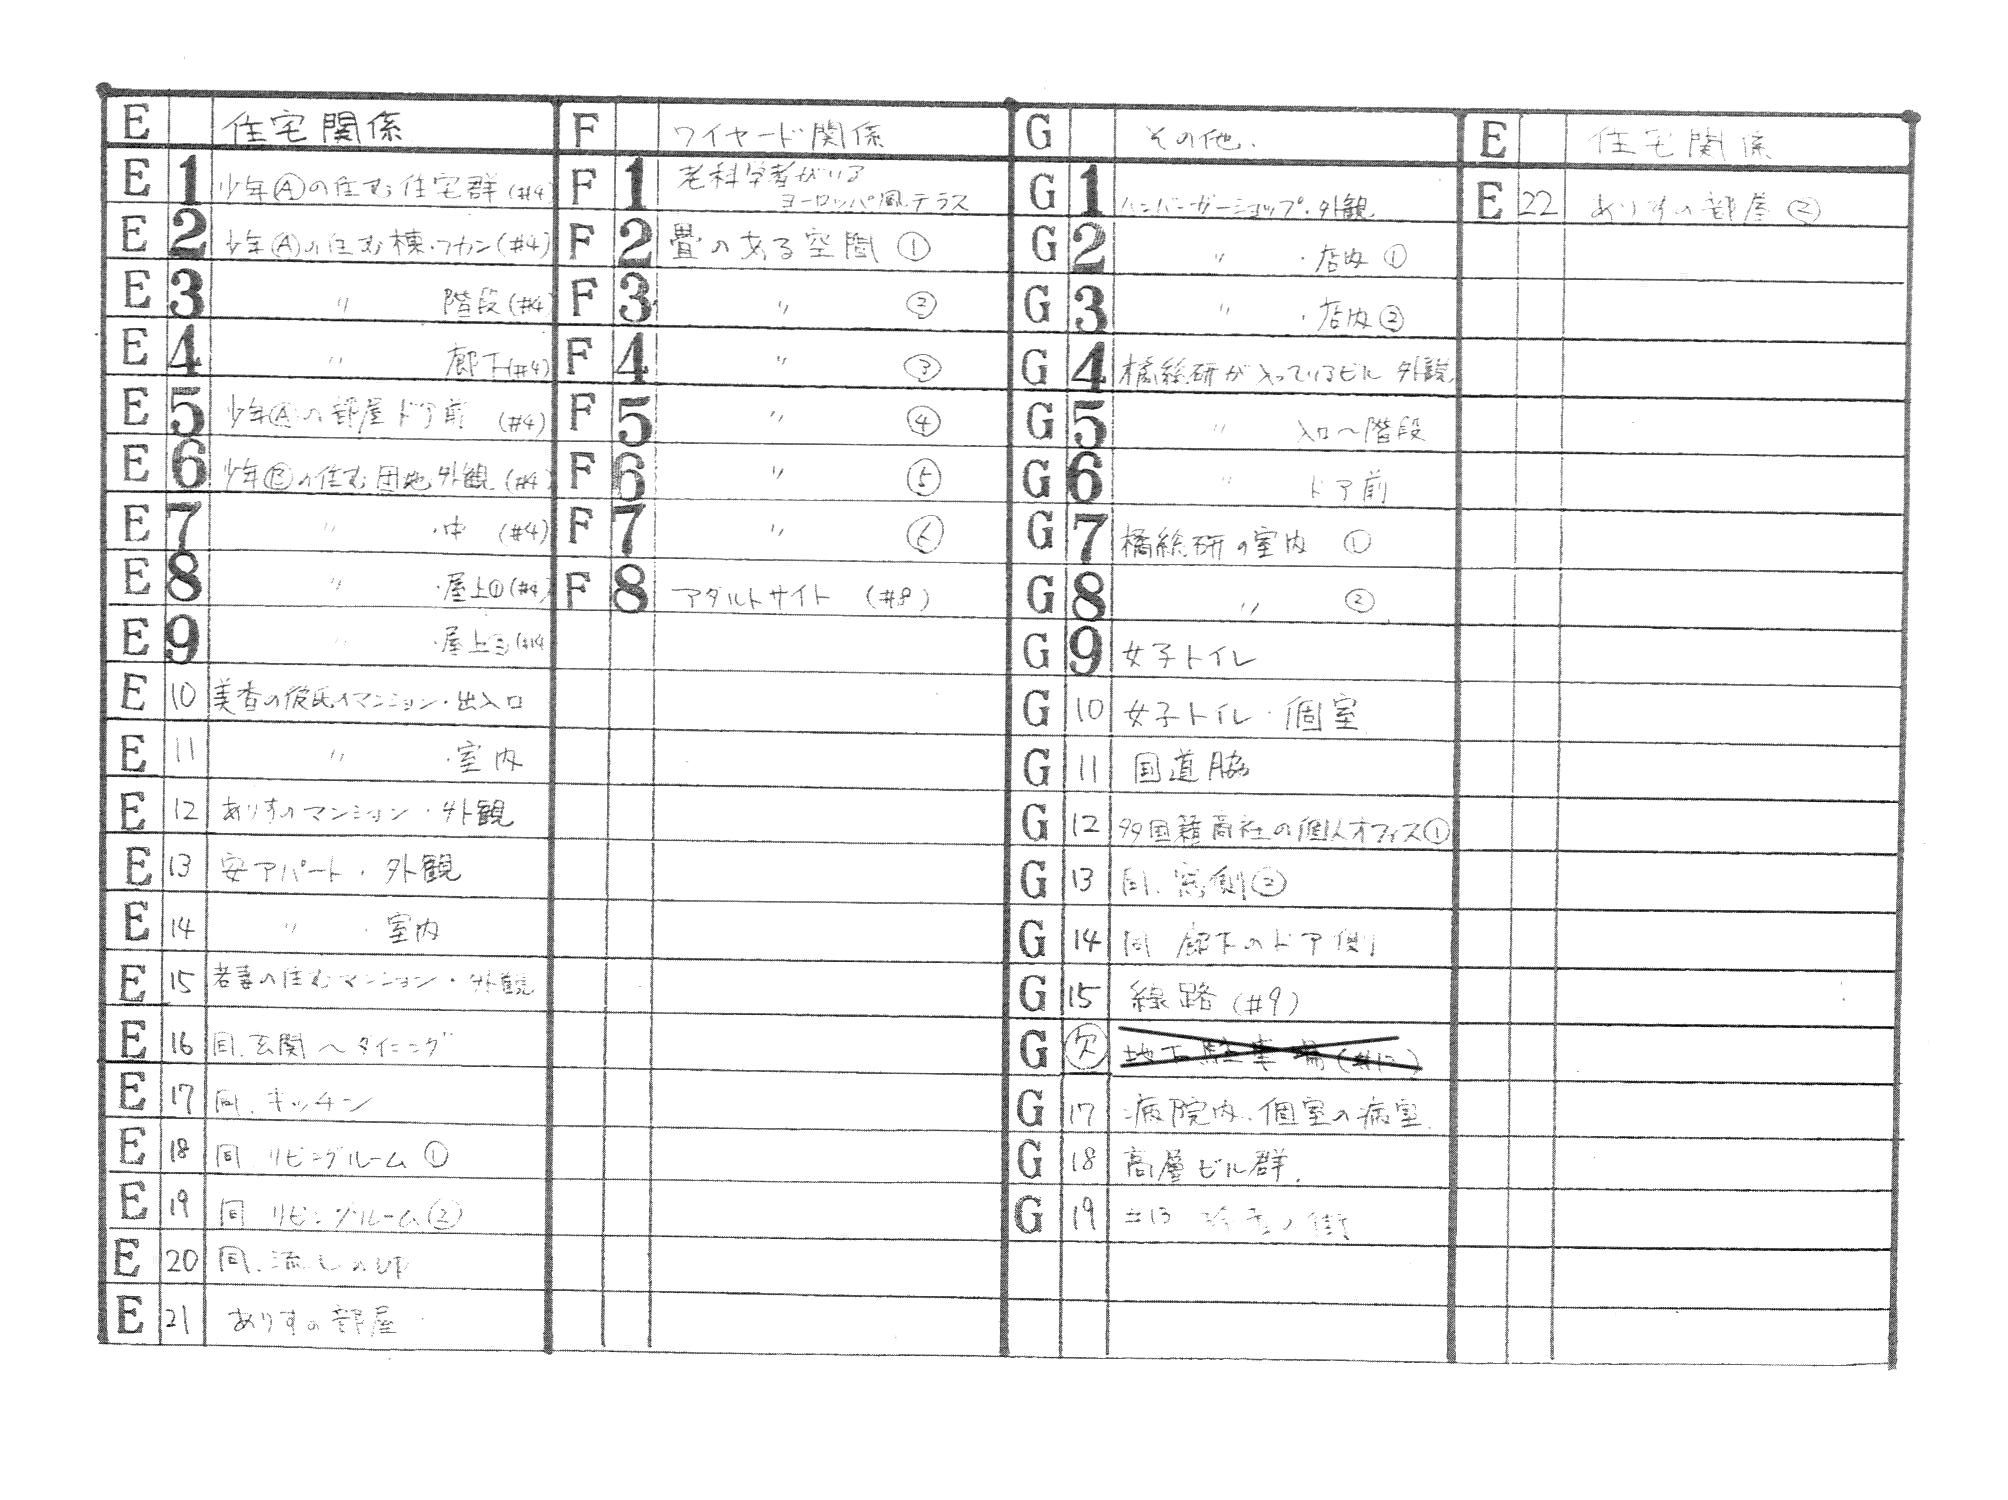 E 住宅関係
E 1 少年Ⓐの住む住宅群(#4)
E 2 少年Ⓐの住む棟・フカン(#4)
E 3 〃 階段(#4)
E 4 〃 廊下(#4)
E 5 少年Ⓐの部屋ドア前 (#4)
E 6 少年Ⓑの住む団地外観(#4)
E 7 〃 ・中 (#4)
E 8 〃 ・屋上①(#4)
E 9 〃 ・屋上②(#4)
E 10 美香の彼氏のマンション・出入口
E 11 〃 ・室内
E 12 ありすのマンション・外観
E 13 安アパート・外観
E 14 〃 ・室内
E 15 若妻の住むマンション・外観
E 16 同.玄関〜ダイニング
E 17 同.キッチン
E 18 同 リビングルーム①
E 19 同 リビングルーム②
E 20 同.流しの
E 21 ありすの部屋
F ワイヤード関係
F 1 老科学者がいる
ヨーロッパ風テラス
F 2 畳のある空間 ①
F 3 〃 ②
F 4 〃 ③
F 5 〃 ④
F 6 〃 ⑤
F 7 〃 ⑥
F 8 アダルトサイト (#8)
G その他.
G 1 ハンバーガーショップ・外観
G 2 〃 ・店内①
G 3 〃 ・店内②
G 4 橘総研が入っているビル 外観
G 5 〃 入口〜階段
G 6 〃 ドア前
G 7 橘総研の室内 ①
G 8 〃 ②
G 9 女子トイレ
G 10 女子トイレ・個室
G 11 国道脇
G 12 多国籍商社の個人オフィス①
G 13 同.窓側②
G 14 同 廊下のドア側
G 15 線路(#9)
G 欠 地下駐車場
G 17 病院内.個室の病室.
G 18 高層ビル群.
G 19 #13 街
E 住宅関係
E 22 ありすの部屋②